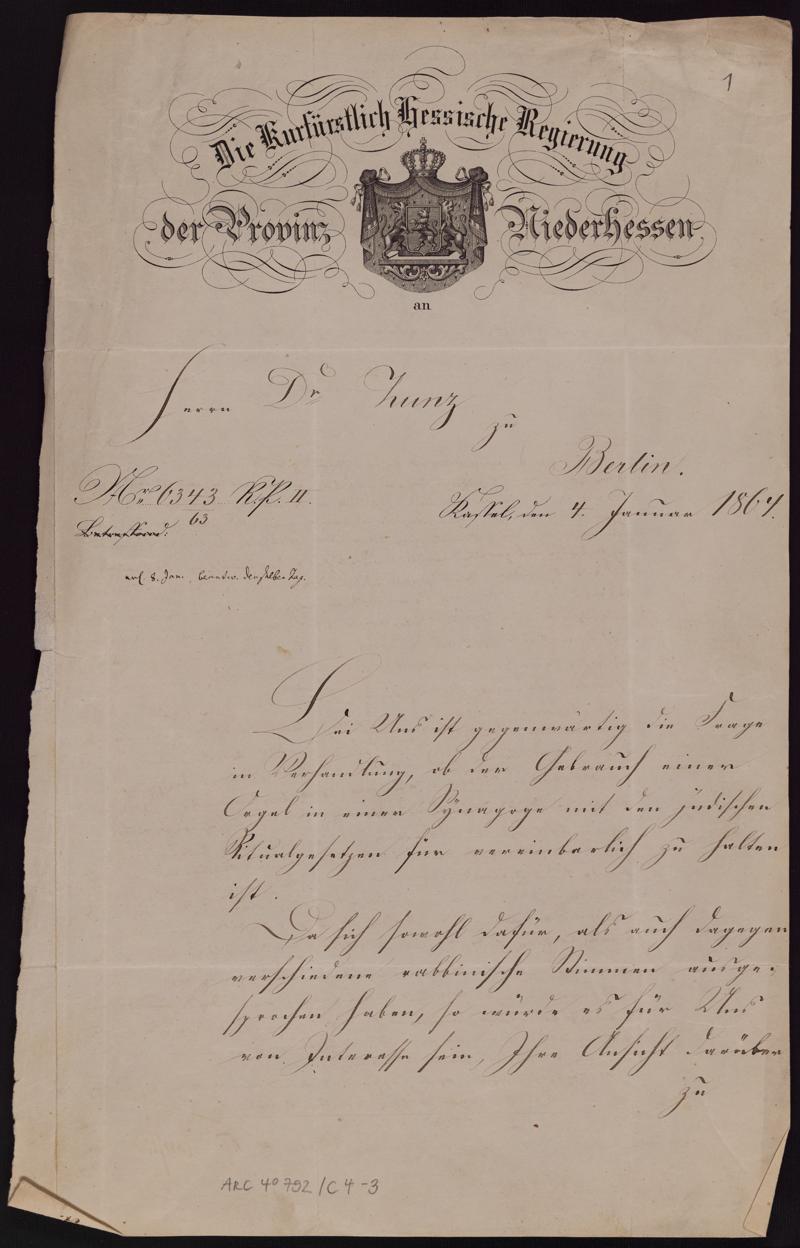 1
Die Kurfürstlich Hessische Regierung
der Provinz Niederhessen
an
Herrn Dr Zunz
zu
Berlin.
Nr 6343 R.P. II.
63
Kassel, den 4. Januar 1864.
erh. 8. Jan., beantw. denselben Tag.
Bei Uns ist gegenwärtig die Frage
in Verhandlung, ob der Gebrauch einer
Orgel in einer Synagoge mit den jüdischen
Ritualgesetzen für vereinbarlich zu halten
ist.
Da sich sowohl dafür, als auch dagegen
verschiedene rabbinische Stimmen ausge-
sprochen haben, so würde es für Uns
von Interesse sein, Ihre Ansicht darüber
zu
ARC 4° 792 / C 4 - 3